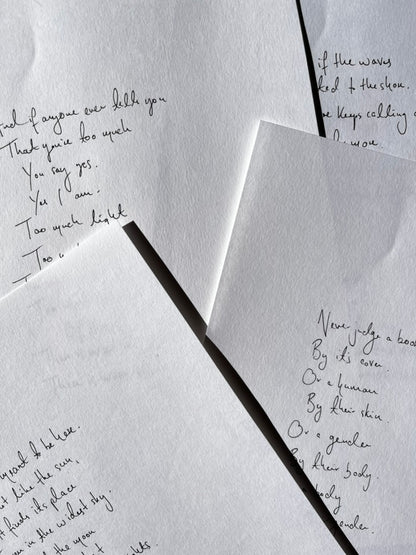 And if anyone ever tells you
That you're too much
You say yes.
Yes I am.
Too much light
Too
if the waves
to the shore.
keys calling
Never judge a book
By it's cover.
Or a human
By their skin.
Or a gender
By their body.
body
gender.
meant to be here.
like the sun,
finds its place
in the widest sky.
the moon